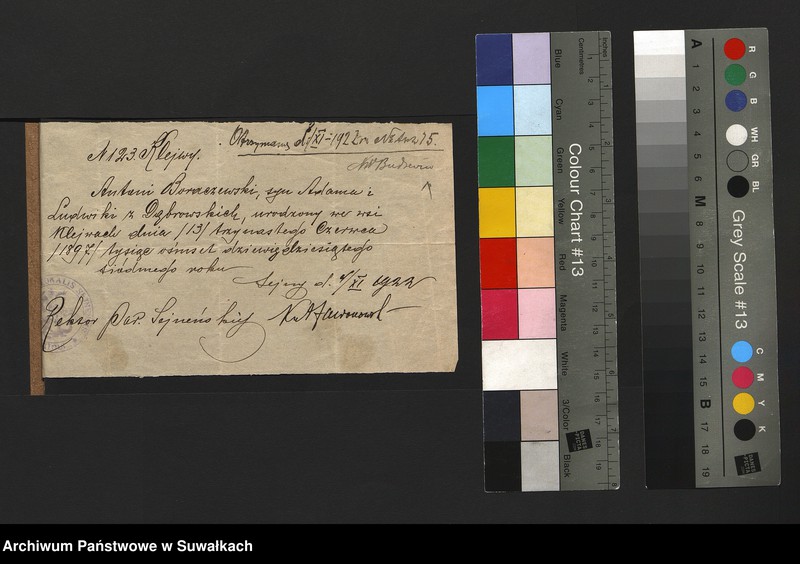 Otrzymano d. /XI-1922
N 123. Klejwy.
Antoni Boraczewski, syn Adama i
Ludwiki z Dąbrowskich, urodzony we wsi
Klejwach dnia /13/ trzynastego Czerwca
/1897/ tysiąc ośmset dziewięćdziesiątego
siódmego roku
Sejny d. 4/XI 1922
Rektor Par. Sejneńskiej
Inches
Centimetres
1 2 3 4 5 6 7 8 9 10 11 12 13 14 15 16 17 18 19
1 2 3 4 5 6 7 8
Blue
Cyan
Green
Yellow
Red
Magenta
White
3/Color
Black
Colour Chart #13
A 1 2 3 4 5 6 M 8 9 10 11 12 13 14 15 B 17 18 19
R
G
B
WH
GR
BL
Grey Scale #13
C
M
Y
K
Archiwum Państwowe w Suwałkach